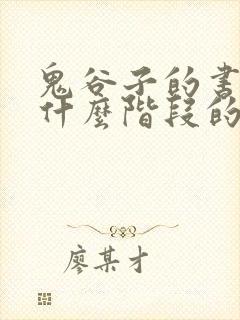 鬼谷子的書
什麼階段的
廖某才